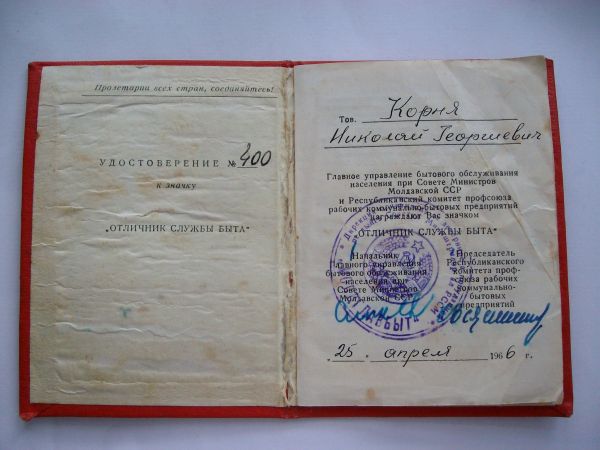 Пролетарии всех стран, соединяйтесь!
УДОСТОВЕРЕНИЕ № 400
к значку
„ОТЛИЧНИК СЛУЖБЫ БЫТА“
Тов. Корня
Николай Георгиевич
Главное управление бытового обслуживания
населения при Совете Министров
Молдавской ССР
и Республиканский комитет профсоюза
рабочих коммунально-бытовых предприятий
награждают Вас значком
„ОТЛИЧНИК СЛУЖБЫ БЫТА“
Начальник
Главного управления
бытового обслуживания
населения при
Совете Министров
Молдавской ССР
Председатель
Республиканского
комитета проф-
союза рабочих
коммунально-
бытовых
предприятий
„25„ апреля 1966 г.